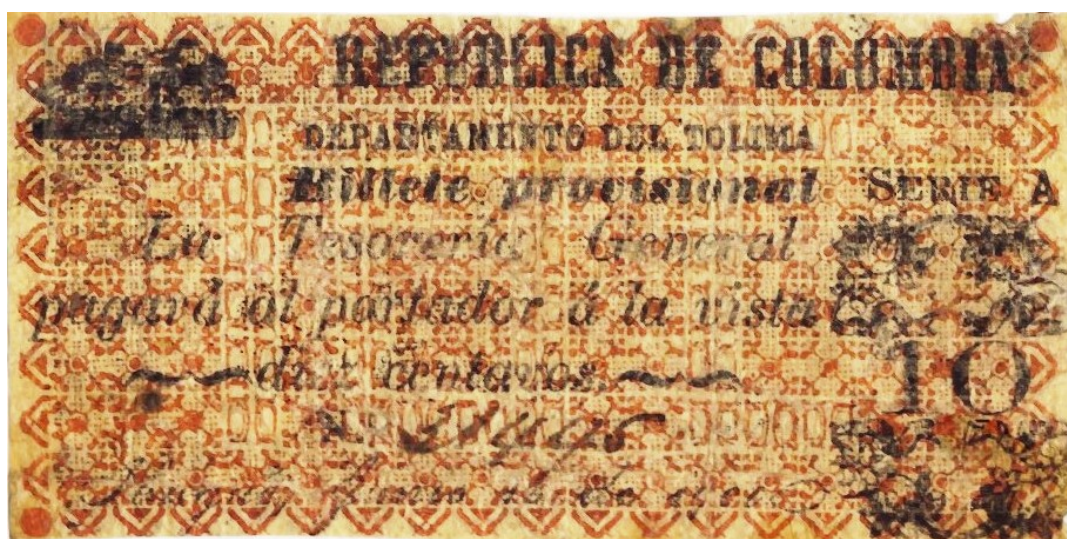 REPUBLICA DE COLOMBIA
DEPARTAMENTO DEL TOLIMA
Billete provisional SERIE A
La Tesorería General
pagará al portador á la vista
diez centavos
10
N.